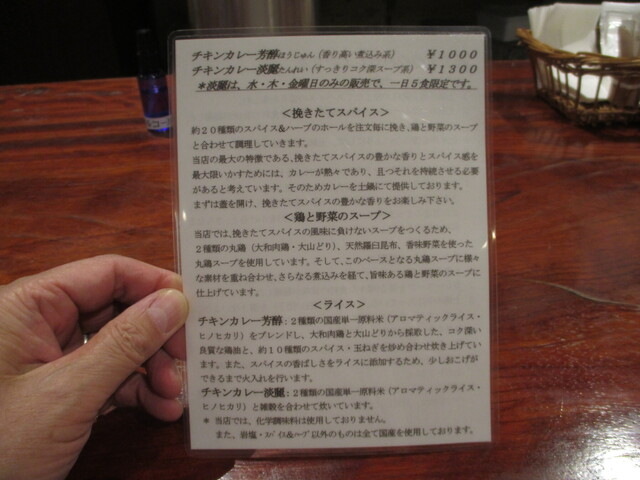 チキンカレー芳醇ほうじゅん（香り高い煮込み系） ￥１０００
チキンカレー淡麗たんれい（すっきりコク深スープ系） ￥１３００
＊淡麗は、水・木・金曜日のみの販売で、一日５食限定です。
＜挽きたてスパイス＞
約２０種類のスパイス&ハーブのホールを注文毎に挽き、鶏と野菜のスープ
と合わせて調理していきます。
当店の最大の特徴である、挽きたてスパイスの豊かな香りとスパイス感を
最大限いかすためには、カレーが熱々であり、且つそれを持続させる必要
があると考えています。そのためカレーを土鍋にて提供しております。
まずは蓋を開け、挽きたてスパイスの豊かな香りをお楽しみ下さい。
＜鶏と野菜のスープ＞
当店では、挽きたてスパイスの風味に負けないスープをつくるため、
２種類の丸鶏（大和肉鶏・大山どり）、天然羅臼昆布、香味野菜を使った
丸鶏スープを使用しています。そして、このベースとなる丸鶏スープに様々
な素材を重ね合わせ、さらなる煮込みを経て、旨味ある鶏と野菜のスープに
仕上げています。
＜ライス＞
チキンカレー芳醇：２種類の国産単一原料米（アロマティックライス・
ヒノヒカリ）をブレンドし、大和肉鶏と大山どりから採取した、コク深い
良質な鶏油と、約１０種類のスパイス・玉ねぎを炒め合わせ炊き上げてい
ます。また、スパイスの香ばしさをライスに追加するため、少しおこげが
できるまで火入れを行います。
チキンカレー淡麗：２種類の国産単一原料米（アロマティックライス・
ヒノヒカリ）と雑穀を合わせて炊いています。
＊ 当店では、化学調味料は使用しておりません。
また、岩塩・ｽﾊﾟｲｽ&ﾊｰﾌﾞ以外のものは全て国産を使用しております。